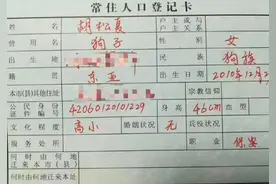 常住人口登记卡
姓名 胡松夏 户主或与户主关系
曾用名 狗子 性别 女
出生地 民族 狗族
籍贯 东亚 出生日期 2010年12月2
本市(县)其他住址 宗教信仰
公民身份证件编号 42060120101229 身高 46cm 血型
文化程度 高小 婚姻状况 无 兵役状况
服务处所 职业 保安
何时由何地迁来本市(县)
何时由何地迁来本址